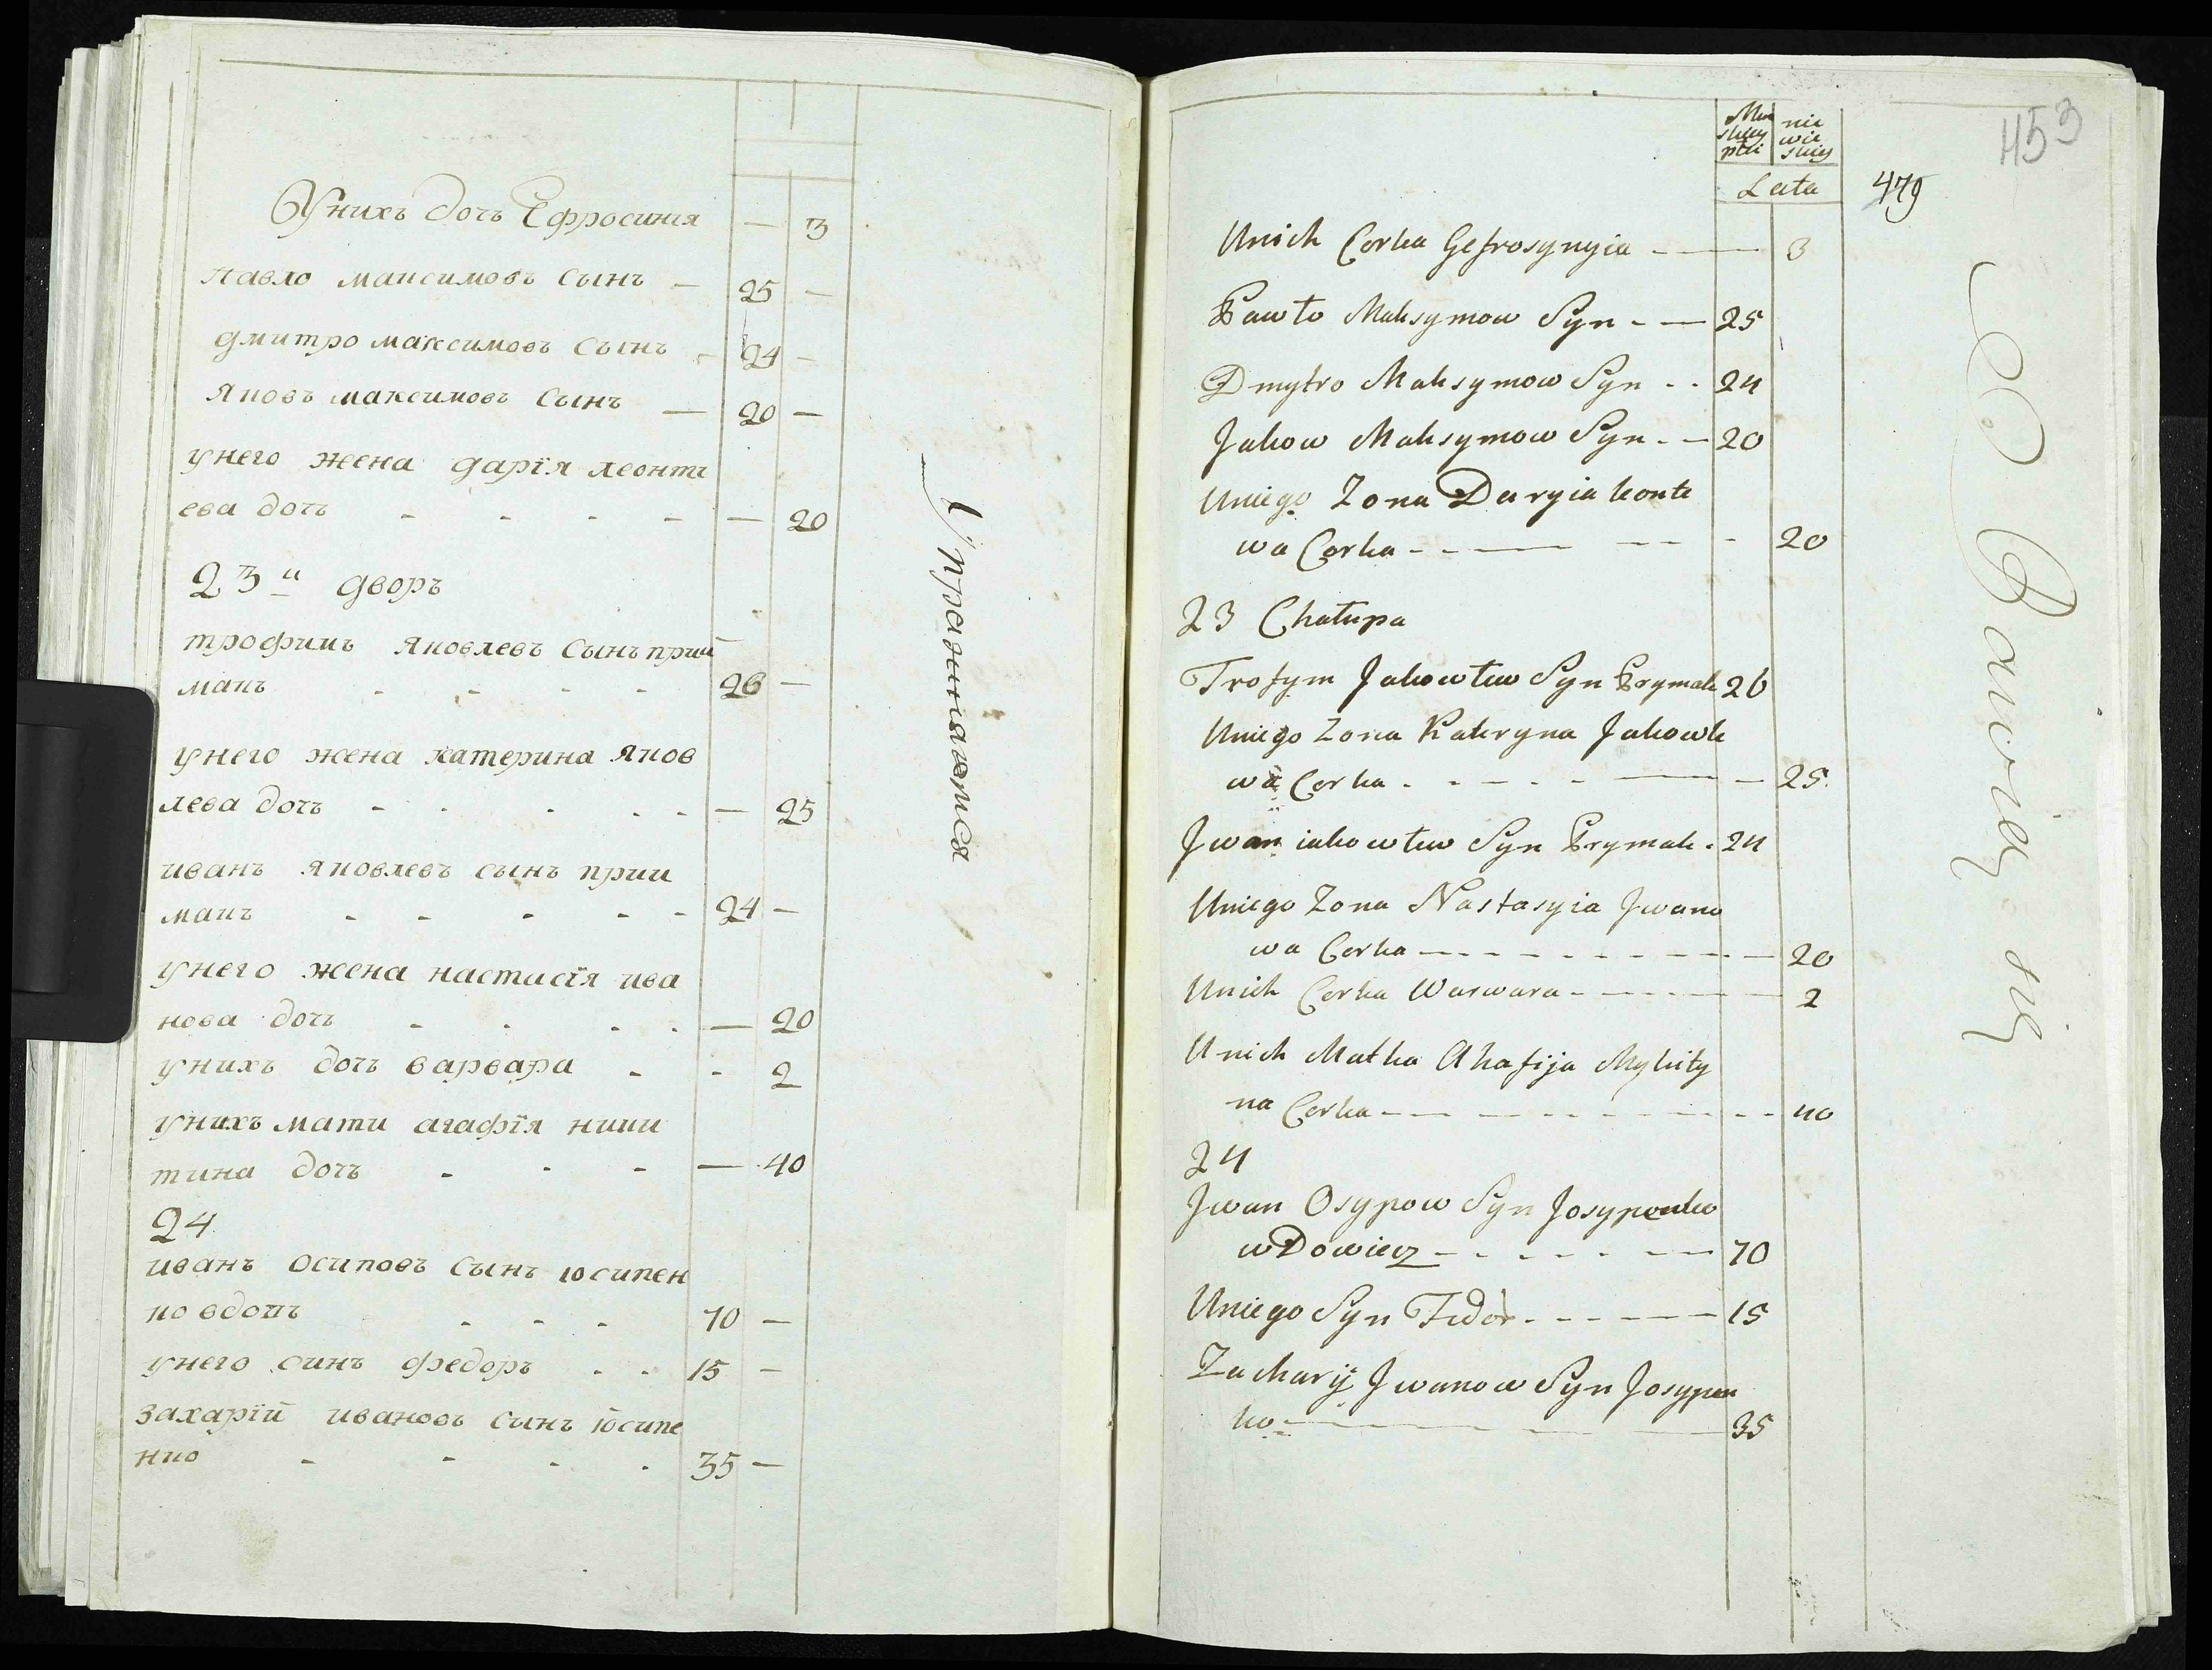 Унихъ дочъ Ефросинія — 3
павло максимовъ сынъ — 25 —
дмитро максимовъ сынъ - 24 —
яковъ максимовъ сынъ — 20 —
унего жена дарїя леонтъ
ева дочъ - - - - — 20
23й дворъ
трофимъ яковлевъ сынъ прий
макъ - - - - 26 —
унего жена катерина яков
лева дочъ - - - - - — 25
иванъ яковлевъ сынъ прии
макъ - - - - - 24 —
унего жена настасїя ива
нова дочъ - - - - — 20
унихъ дочъ варвара - - 2
унихъ мати агафїя ники
тина дочъ - - - — 40
24
иванъ осиповъ сынъ юсипен
ко вдовъ - - - 70 —
унего синъ федоръ - - 15 —
захарїй ивановъ сынъ юсипе
нко - - - - 35 —
Упражняются
453
479
nie
wie
skiey
Lata
Unich Corka Gefrosynyia - — 3
Pawło Maksymow Syn - — 25
Dmytro Maksymow Syn - - 24
Jakow Maksymow Syn - — 20
Uniego Zona Daryia Leonte
wa Corka - - — — - 20
23 Chałupa
Trofym Jakowlew Syn Prymak 26
Uniego Zona Kateryna Jakowle
wa Corka - - - - - — — 25
Jwan iakowlew Syn Prymak - 24
Uniego Zona Nastasyia Jwano
wa Corka — - - - - - - — 20
Unich Corka Warwara - — — 2
Unich Matka Ahafija Mykity
na Corka — — - - - - - - 40
24
Jwan Osypow Syn Josypenko
wDowiec - - - - - — 70
Uniego Syn Fedor - - - - — 15
Zacharij Jwanow Syn Josypen
ko — — — 35
Bawią się